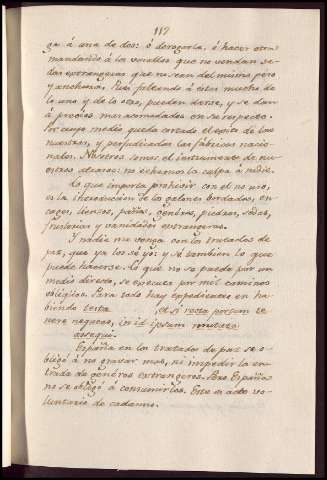 117
ga á una de dos: ó derogarla, ó hacer otra
mandando á los vasallos que no vendan se-
das extrangeras que no sean del mismo peso
y anchura. Pues faltando á estas mucho de
lo uno y de lo otro, pueden darse, y se dan
á precios mas acomodados en su respecto.
Por cuyo medio queda cortado el gasto de las
nuestras, y perjudicadas las fábricas nacio-
nales. Nosotros somos el instrumento de nu-
estros atrasos: no echemos la culpa á nadie.
Lo que importa prohivir con el no uso,
es la introduccion de los galones bordados, en-
cages, lienzos, paños, géneros, piedras, sedas,
fruslerias y vanidades extrangeras.
Y nadie me venga con los tratados de
paz, que ya los sé yo: y sé tambien lo que
puede hacerse. Lo que no se puede por un
medio directo, se executa por mil caminos
obliqüos. Para todo hay expedientes en ha-
biendo testa et si recta portum te-
nere nequeas, in id ipsum mutata
assequi.
España en los tratados de paz se o-
bligó á no gravar mas, ni impedir la en-
trada de géneros extrangeros. Pero España
no se obligó á consumirlos. Este es acto vo-
luntario de cada uno.